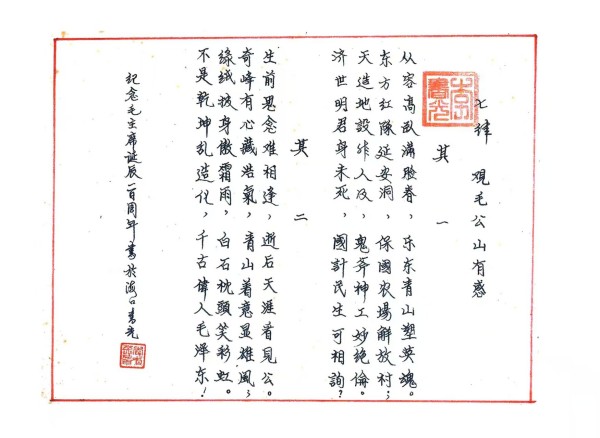 七律 覌毛公山有感
其一
从容高卧满脸春，乐东青山塑英魂。
东方红隊延安洞，保國农場解放村；
天造地設非人及，鬼斧神工妙絶倫。
济世明君身未死，國計民生可相詢？
其二
生前思念难相逢，逝后天涯看見公。
奇峰有心藏浩氣，青山着意显雄風；
绿绒披身傲霜雨，白石枕頭笑彩虹。
不是乾坤乱造化，千古偉人毛澤东！
纪念毛主席誕辰一百周年 書於海口